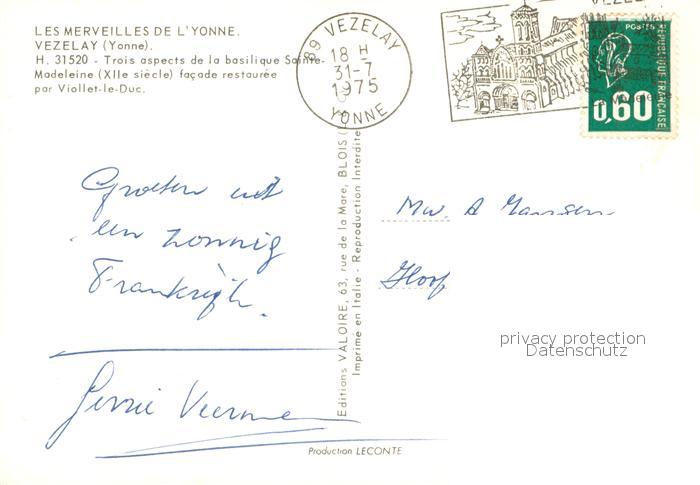 LES MERVEILLES DE L'YONNE.
VEZELAY (Yonne).
H. 31520 - Trois aspects de la basilique Sainte-
Madeleine (XIIe siècle) façade restaurée
par Viollet-le-Duc.
89 VEZELAY
18 H
31-7
1975
YONNE
POSTES
REPUBLIQUE FRANÇAISE
0,60
Groeten uit
een zonnig
Frankrijk.
Editions VALOIRE, 63, rue de la Mare, BLOIS
Imprimé en Italie - Reproduction Interdite
Mw. A Hanssen
privacy protection
Datenschutz
Production LECONTE